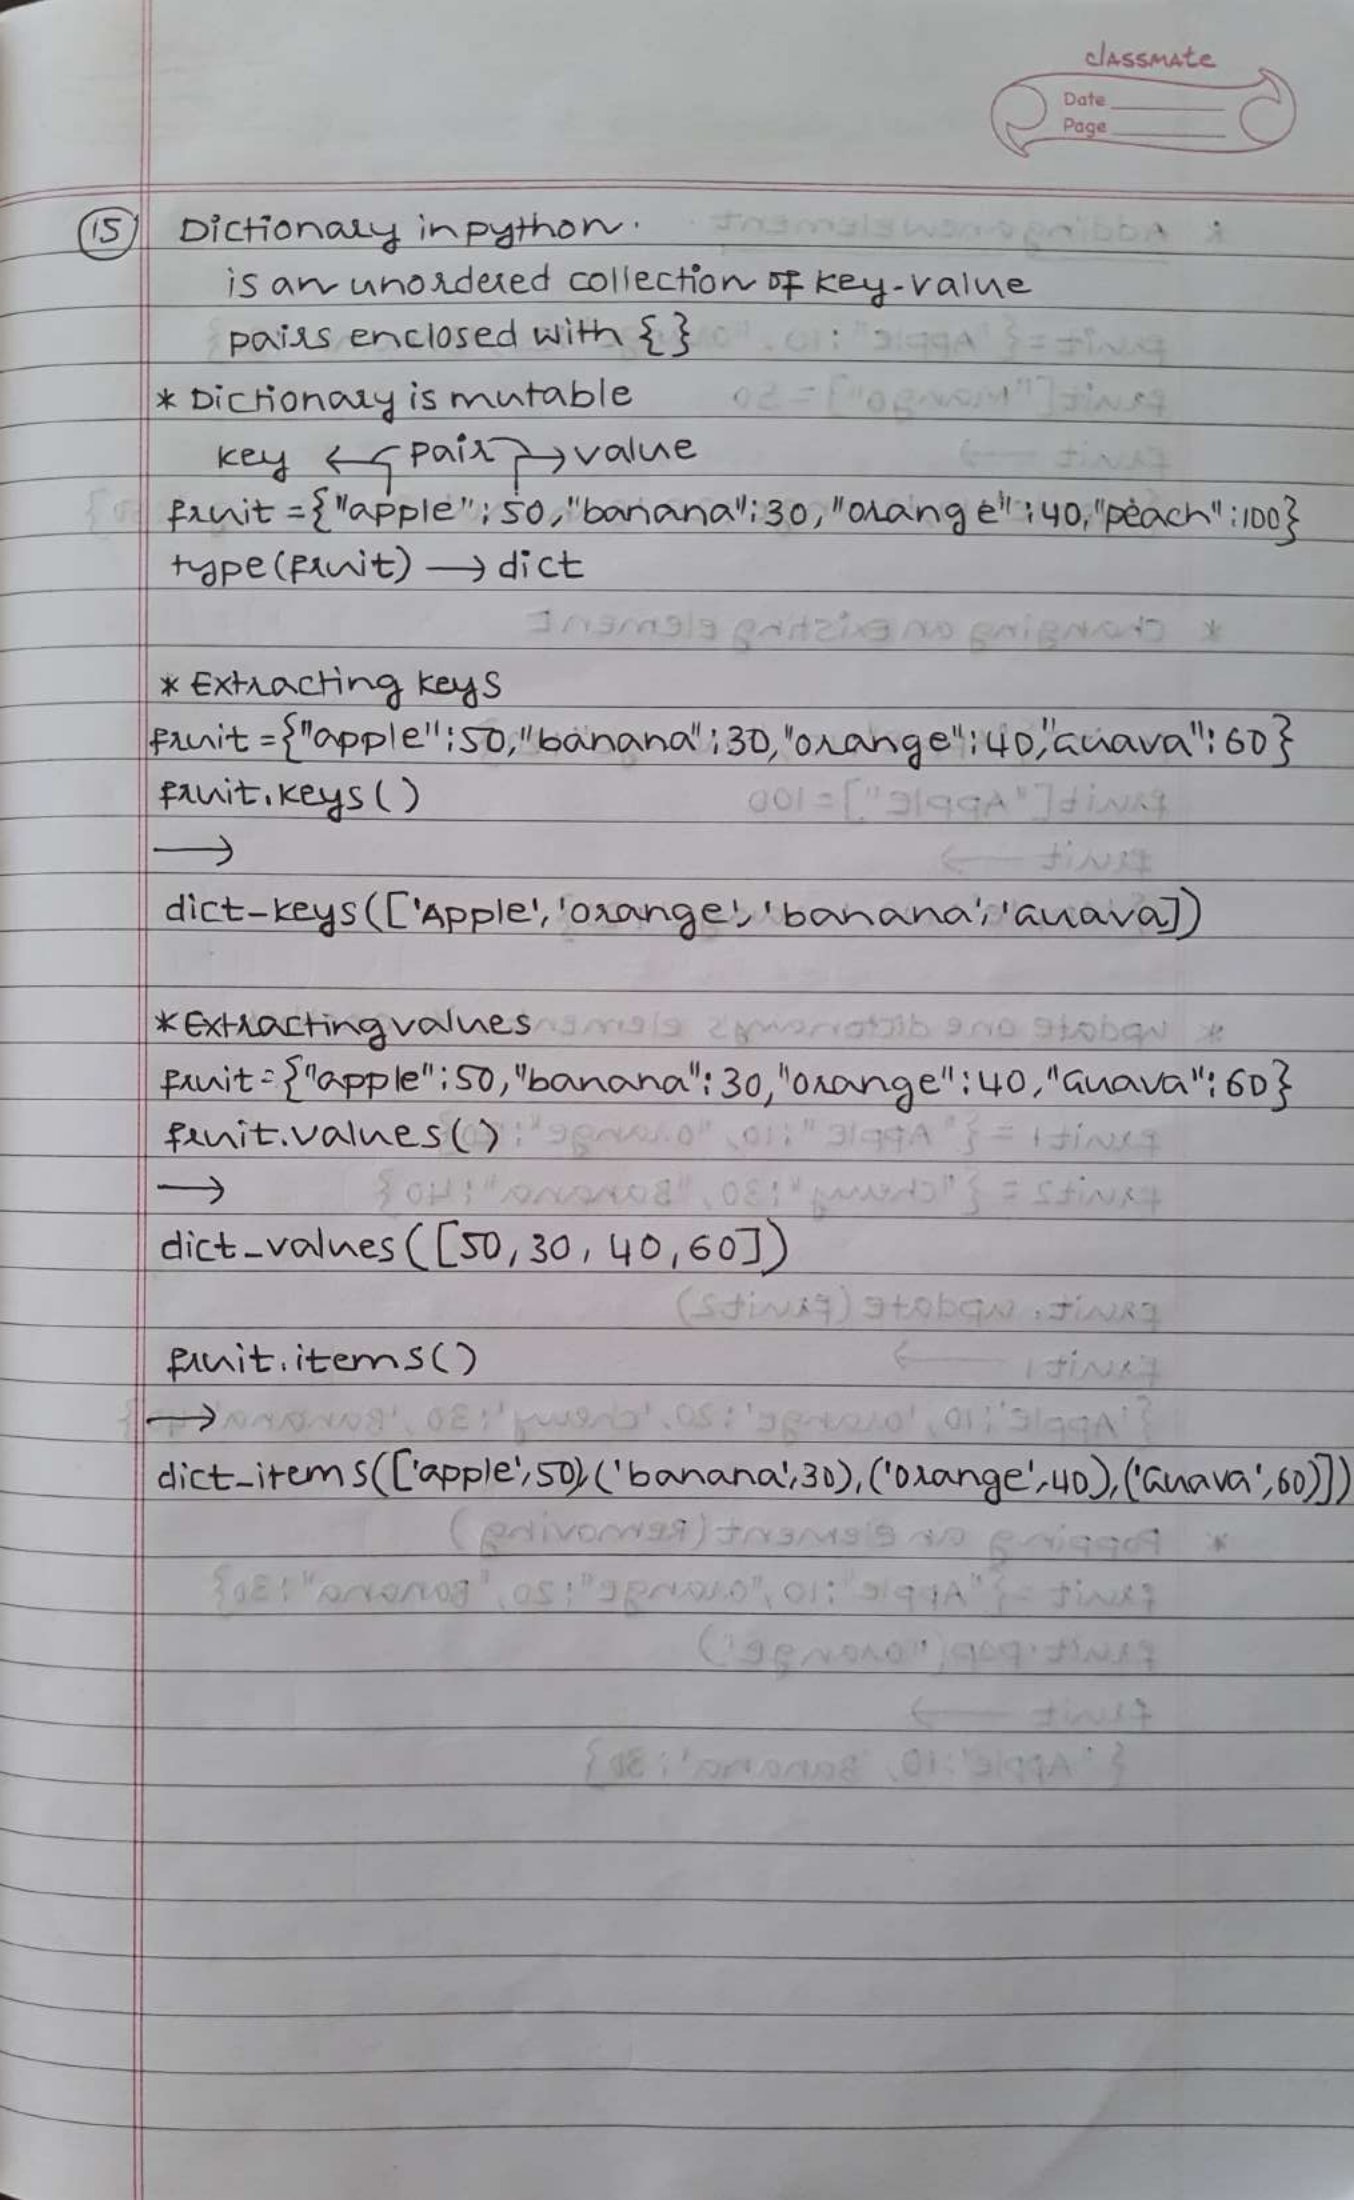 classmate
Date
Page
15 Dictionary in python.
is an unordered collection of key-value
pairs enclosed with { }
* Dictionary is mutable
key ← pair → value
fruit = {"apple" : 50, "banana" : 30, "orange" : 40, "peach" : 100}
type(fruit) → dict
* Extracting keys
fruit = {"apple" : 50, "banana" : 30, "orange" : 40, "Guava" : 60}
fruit.keys()
→
dict-keys(['Apple', 'orange', 'banana', 'Guava])
* Extracting values
fruit = {"apple" : 50, "banana" : 30, "orange" : 40, "Guava" : 60}
fruit.values()
→
dict_values([50, 30, 40, 60])
fruit.items()
→
dict_items(['apple', 50), ('banana', 30), ('orange', 40), ('Guava', 60)])